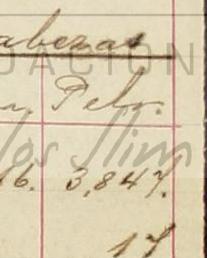 abezas
DACIÓN
n. Pebr.
los Slim
16. 3,847.
17